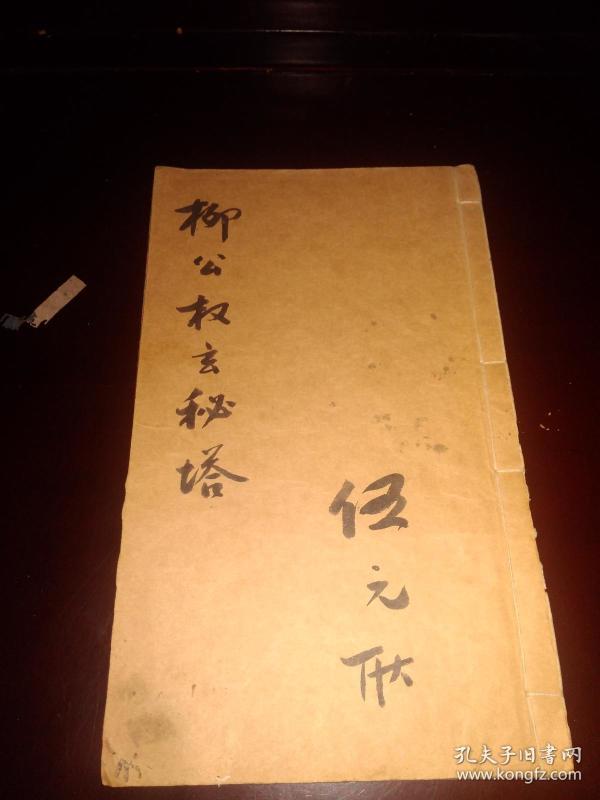 柳公权玄秘塔
伍元
孔夫子旧书网
www.kongfz.com